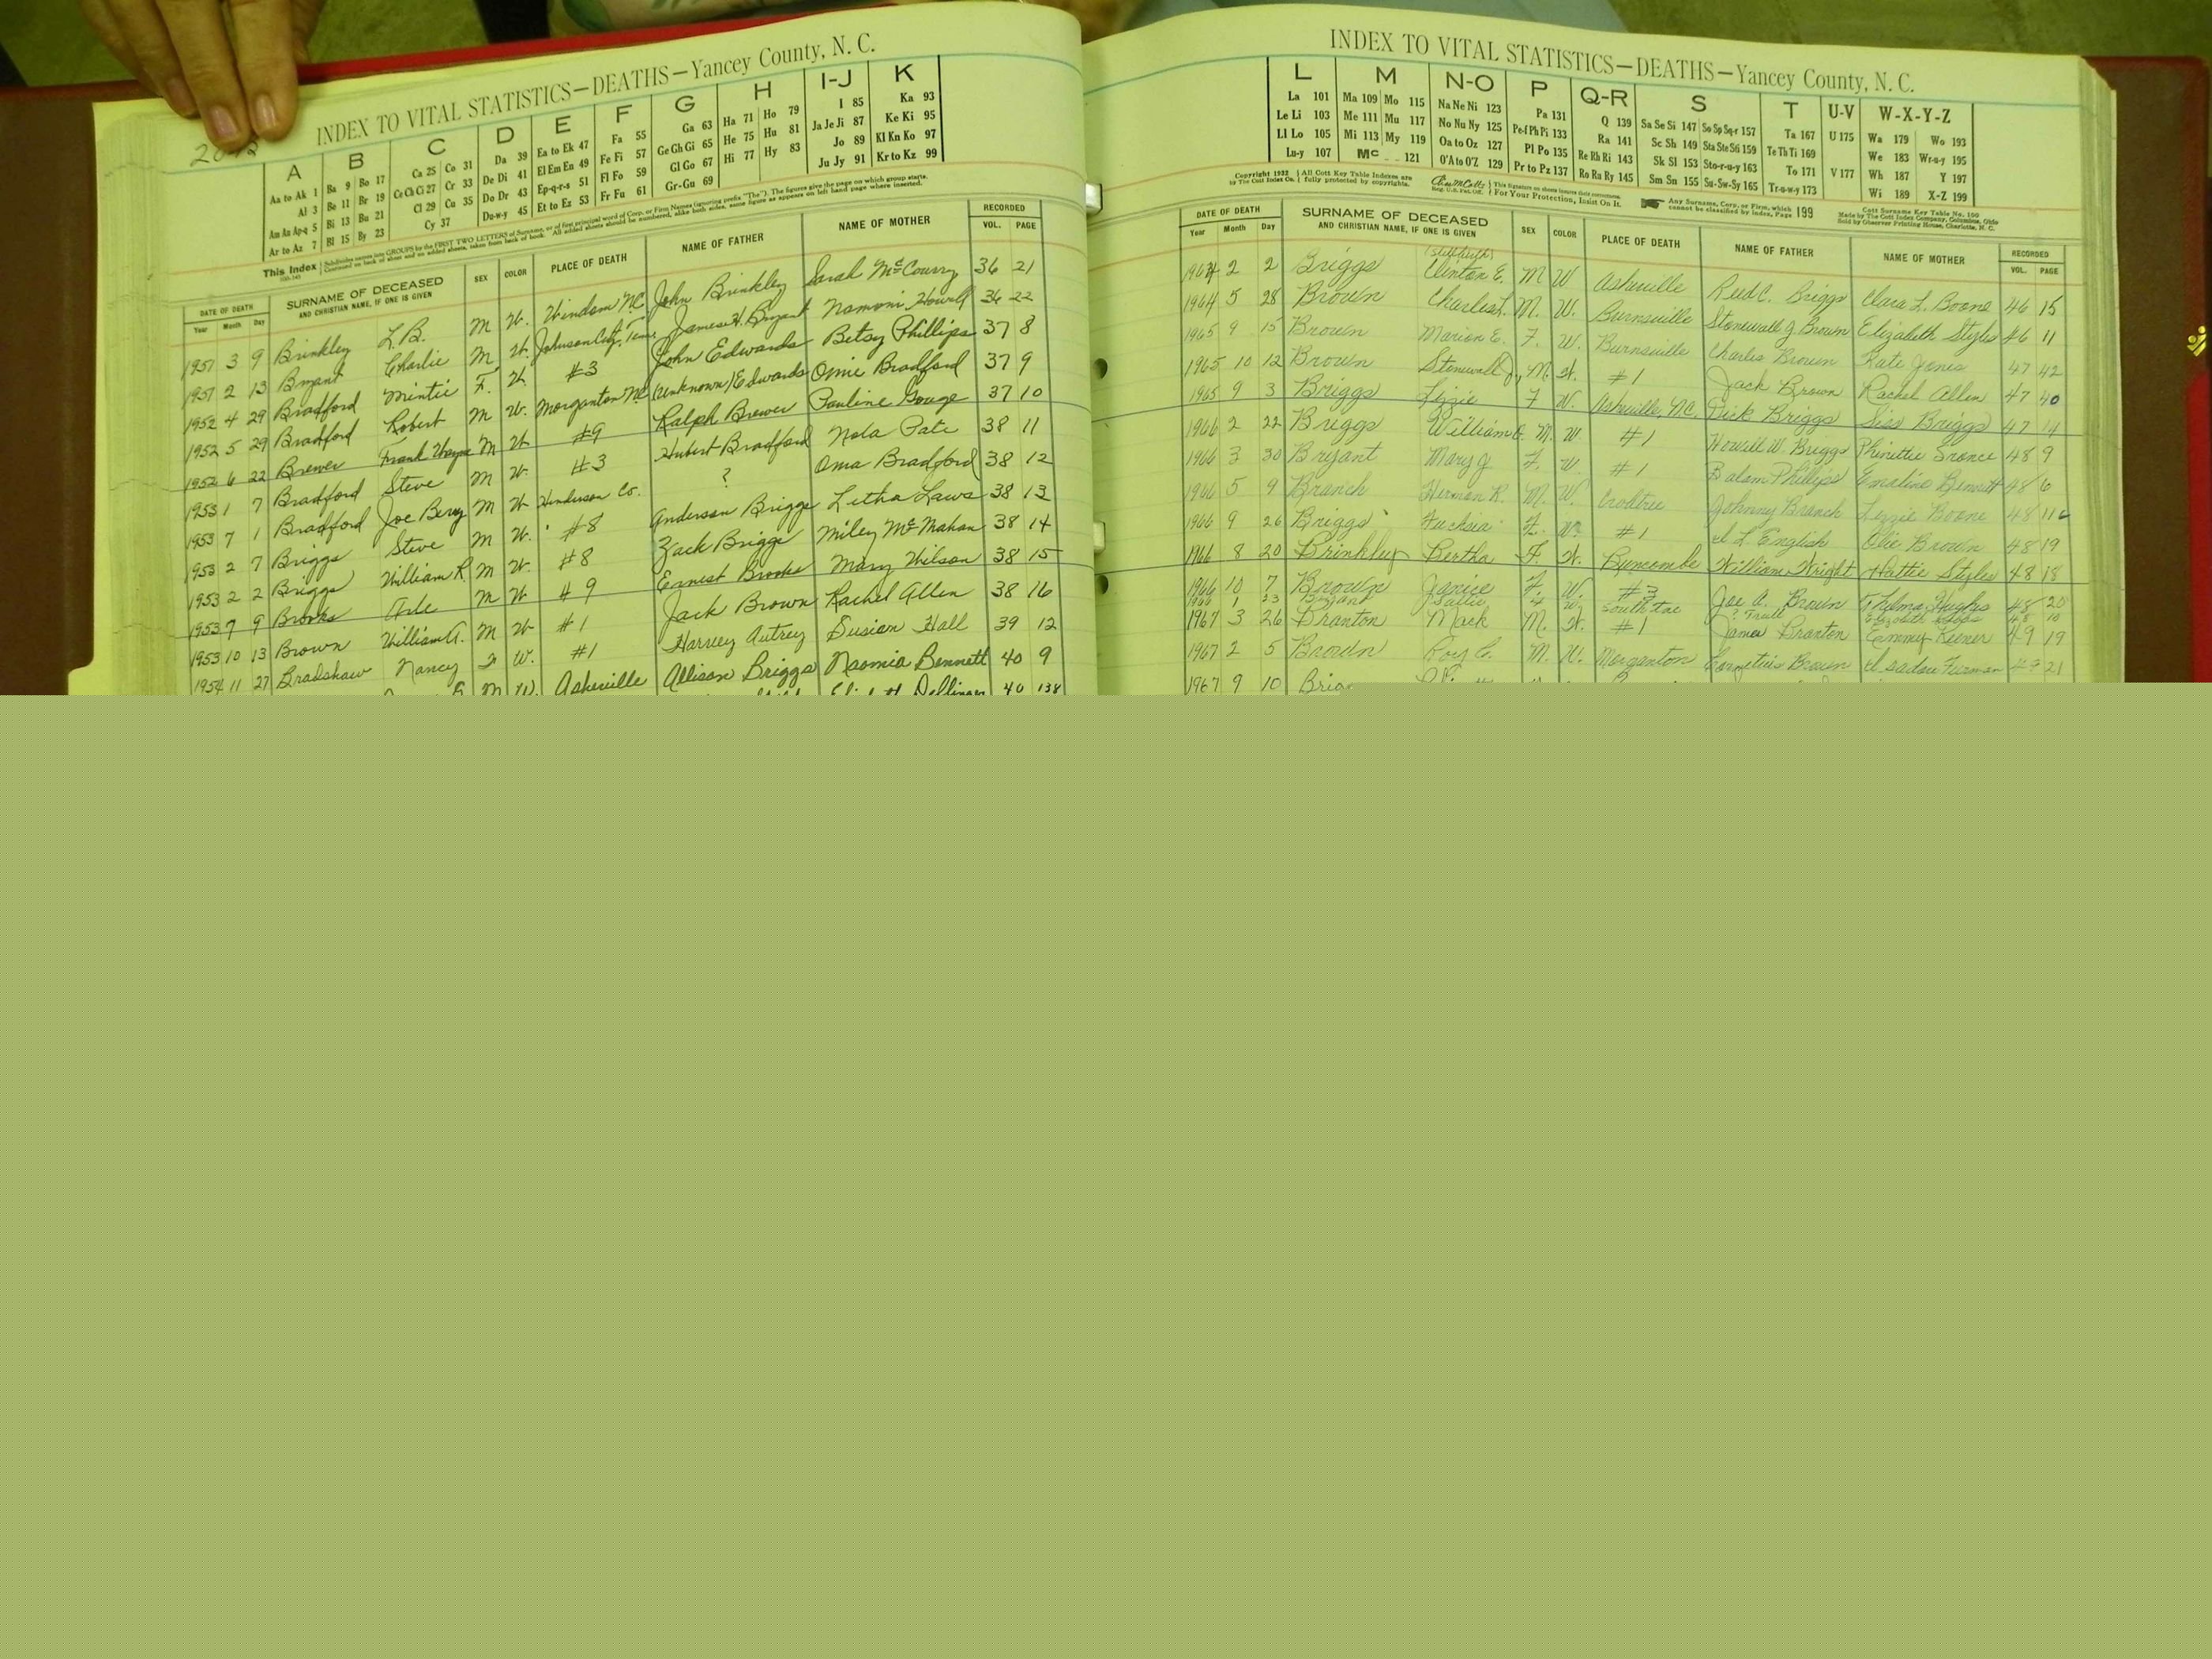 INDEX TO VITAL STATISTICS—DEATHS—Yancey County, N. C.
A B C D E F G H I-J K
Aa to Ak 1 Ba 9 Bo 17 Ca 25 Co 31 Da 39 Ea to Ek 47 Fa 55 Ga 63 Ha 71 Ho 79 I 85 Ka 93
Al 3 Be 11 Br 19 Ce Ch Ci 27 Cr 33 De Di 41 El Em En 49 Fe Fi 57 Ge Gh Gi 65 He 75 Hu 81 Ja Je Ji 87 Ke Ki 95
Am An Ap-q 5 Bi 13 Bu 21 Cl 29 Cu 35 Do Dr 43 Ep-q-r-s 51 Fl Fo 59 Gl Go 67 Hi 77 Hy 83 Jo 89 Kl Kn Ko 97
Ar to Az 7 Bl 15 By 23 Cy 37 Du-w-y 45 Et to Ez 53 Fr Fu 61 Gr-Gu 69 Ju Jy 91 Kr to Kz 99
This Index Subdivides names into GROUPS by the FIRST TWO LETTERS of Surname, or of first principal word of Corp. or Firm Names (ignoring prefix "The"). The figures give the page on which group starts.
Continued on back of sheet and on added sheets, taken from back of book. All added sheets should be numbered, alike both sides, same figure as appears on left hand page where inserted.
DATE OF DEATH SURNAME OF DECEASED SEX COLOR PLACE OF DEATH NAME OF FATHER NAME OF MOTHER RECORDED
Year Month Day AND CHRISTIAN NAME, IF ONE IS GIVEN VOL. PAGE
1951 3 9 Brinkley L.B. M W. Windom NC John Brinkley Sarah McCourry 36 21
1951 2 13 Bryant Charlie M W. Johnson City, Tenn. James H. Bryant Namoni Howell 36 22
1952 4 29 Bradford Mintie F. W. #3 John Edwards Betsy Phillips 37 8
1952 5 29 Bradford Robert M W. Morganton NC (Unknown) Edwards Omie Bradford 37 9
1952 6 22 Brewer Frank Wayne M W #9 Ralph Brewer Pauline Gouge 37 10
1953 1 7 Bradford Steve M W. #3 Hubert Bradford Nola Pate 38 11
1953 7 1 Bradford Joe Berry M W Henderson Co. ? Oma Bradford 38 12
1953 2 7 Briggs Steve M W. #8 Anderson Briggs Letha Laws 38 13
1953 2 2 Briggs William R. M W. #8 Zack Briggs Miley McMahan 38 14
1953 7 9 Brooks Arle M W #9 Ernest Brooks Mary Wilson 38 15
1953 10 13 Brown William A. M W #1 Jack Brown Rachel Allen 38 16
1954 11 27 Bradshaw Nancy F W. #1 Harvey Autrey Susian Hall 39 12
M W. Asheville Allison Briggs Naomia Bennett 40 9
Elizabeth Dellinger 40 138
INDEX TO VITAL STATISTICS—DEATHS—Yancey County, N. C.
L M N-O P Q-R S T U-V W-X-Y-Z
La 101 Ma 109 Mo 115 Na Ne Ni 123 Pa 131 Q 139 Sa Se Si 147 So Sp Sq-r 157 Ta 167 U 175 Wa 179 Wo 193
Le Li 103 Me 111 Mu 117 No Nu Ny 125 Pe-f Ph Pi 133 Ra 141 Sc Sh 149 Sta Ste Sti 159 Te Th Ti 169 We 183 Wr-u-y 195
Ll Lo 105 Mi 113 My 119 Oa to Oz 127 Pl Po 135 Re Rh Ri 143 Sk Sl 153 Sto-r-u-y 163 To 171 V 177 Wh 187 Y 197
Lu-y 107 Mc 121 O'A to O'Z 129 Pr to Pz 137 Ro Ru Ry 145 Sm Sn 155 Su-Sw-Sy 165 Tr-u-w-y 173 Wi 189 X-Z 199
Copyright 1932 All Cott Key Table Indexes are This signature on sheets insures their correctness. Any Surname, Corp. or Firm, which Cott Surname Key Table No. 100
by The Cott Index Co. fully protected by copyrights. Reg. U.S. Pat. Off. For Your Protection, Insist On It. cannot be classified by index, Page 199 Made by The Cott Index Company, Columbus, Ohio
Sold by Observer Printing House, Charlotte, N. C.
DATE OF DEATH SURNAME OF DECEASED SEX COLOR PLACE OF DEATH NAME OF FATHER NAME OF MOTHER RECORDED
Year Month Day AND CHRISTIAN NAME, IF ONE IS GIVEN VOL. PAGE
1964 2 2 Briggs (stillbirth) Clinton E. M W Asheville Reed C. Briggs Clara L. Boone 46 15
1964 5 28 Brown Charles L. M. W. Burnsville Stonewall J Brown Elizabeth Styles 46 11
1965 9 15 Brown Marion E. F. W. Burnsville Charlie Brown Kate Jones 47 42
1965 10 12 Brown Stonewall J., M. W. #1 Jack Brown Rachel Allen 47 40
1965 9 3 Briggs Lizzie F W. Asheville, NC. Dick Briggs Siss Briggs 47 14
1966 2 22 Briggs William M. W. #1 Howell W. Briggs Phinettie Sronce 48 9
1966 3 30 Bryant Mary J F. W. #1 Balam Phillips Emaline Bennett 48 6
1966 5 9 Branch Herman R. M. W. Crabtree Johnny Branch Lizzie Boone 48 116
1966 9 26 Briggs Fuchsia F. W. #1 English Olie Brown 48 19
1966 8 20 Brinkley Bertha F. W. Buncombe William Wright Hattie Styles 48 18
1966 10 7 Brown Janice F. W. #3 Joe A. Brown Thelma Hughs 48 20
1966 1 23 Bryant Sallie F W South Toe 48 10
1967 3 26 Branton Mack M. W. #1 James Branton Emmy Keener 49 19
1967 2 5 Brown Roy C. M. W. Morganton Cornelius Brown Furman 49 21
1967 9 10